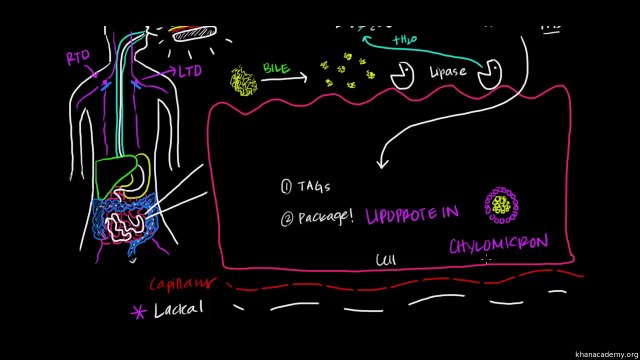 +H₂O
RTD
LTD
BILE
Lipase
① TAGs
② Package! LIPOPROTEIN
CHYLOMICRON
Cell
Capillary
* Lacteal
khanacademy.org